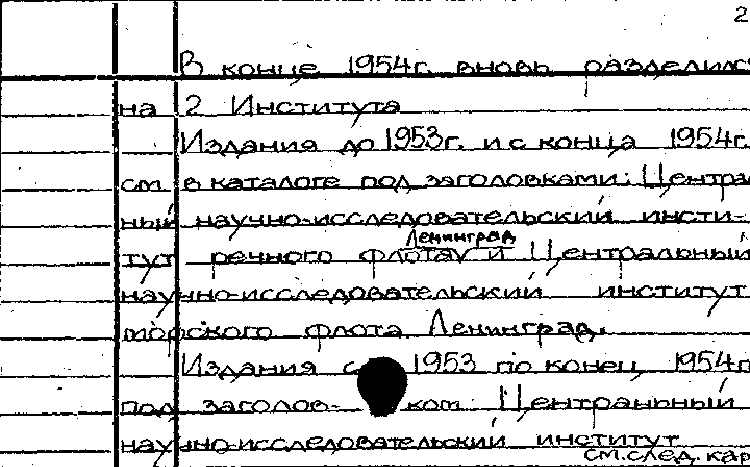 2
В конце 1954г. вновь разделилс
на 2 Института
Издания до 1953г. и с конца 1954г.
см в каталоге под заголовками: Центра
ный научно-исследовательский инсти-
Ленинград
тут речного флота и Центральный
научно-исследовательский институт
морского флота. Ленинград.
Издания с 1953 по конец 1954г
под заголов- ком Центральный
научно-исследовательский институт
см. след. кар